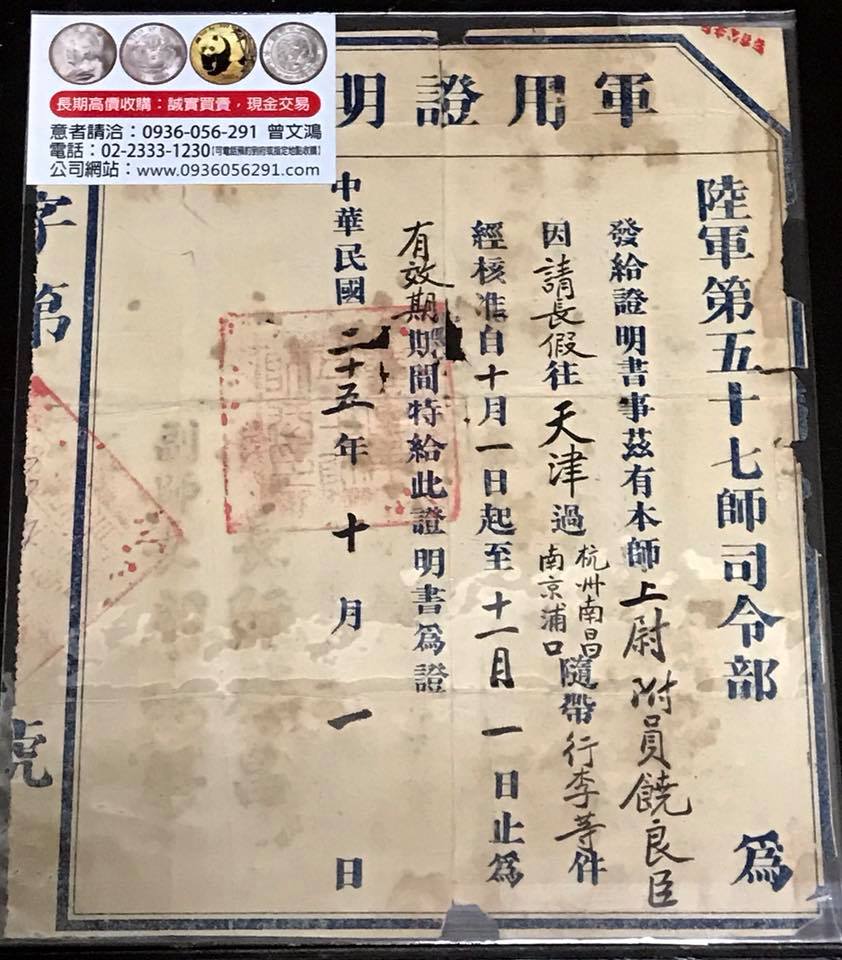 長期高價收購：誠實買賣，現金交易
意者請洽：0936-056-291 曾文鴻
電話：02-2333-1230【可電話預約到府或指定地點收購】
公司網站：www.0936056291.com
軍用證明
陸軍第五十七師司令部 為
發給證明書事茲有本師上尉附員饒良臣
因請長假往天津過杭州南昌南京浦口隨帶行李等件
經核准自十月一日起至十一月一日止為
有效期期間特給此證明書為證
中華民國二十五年十月一日
副師長
字第 號